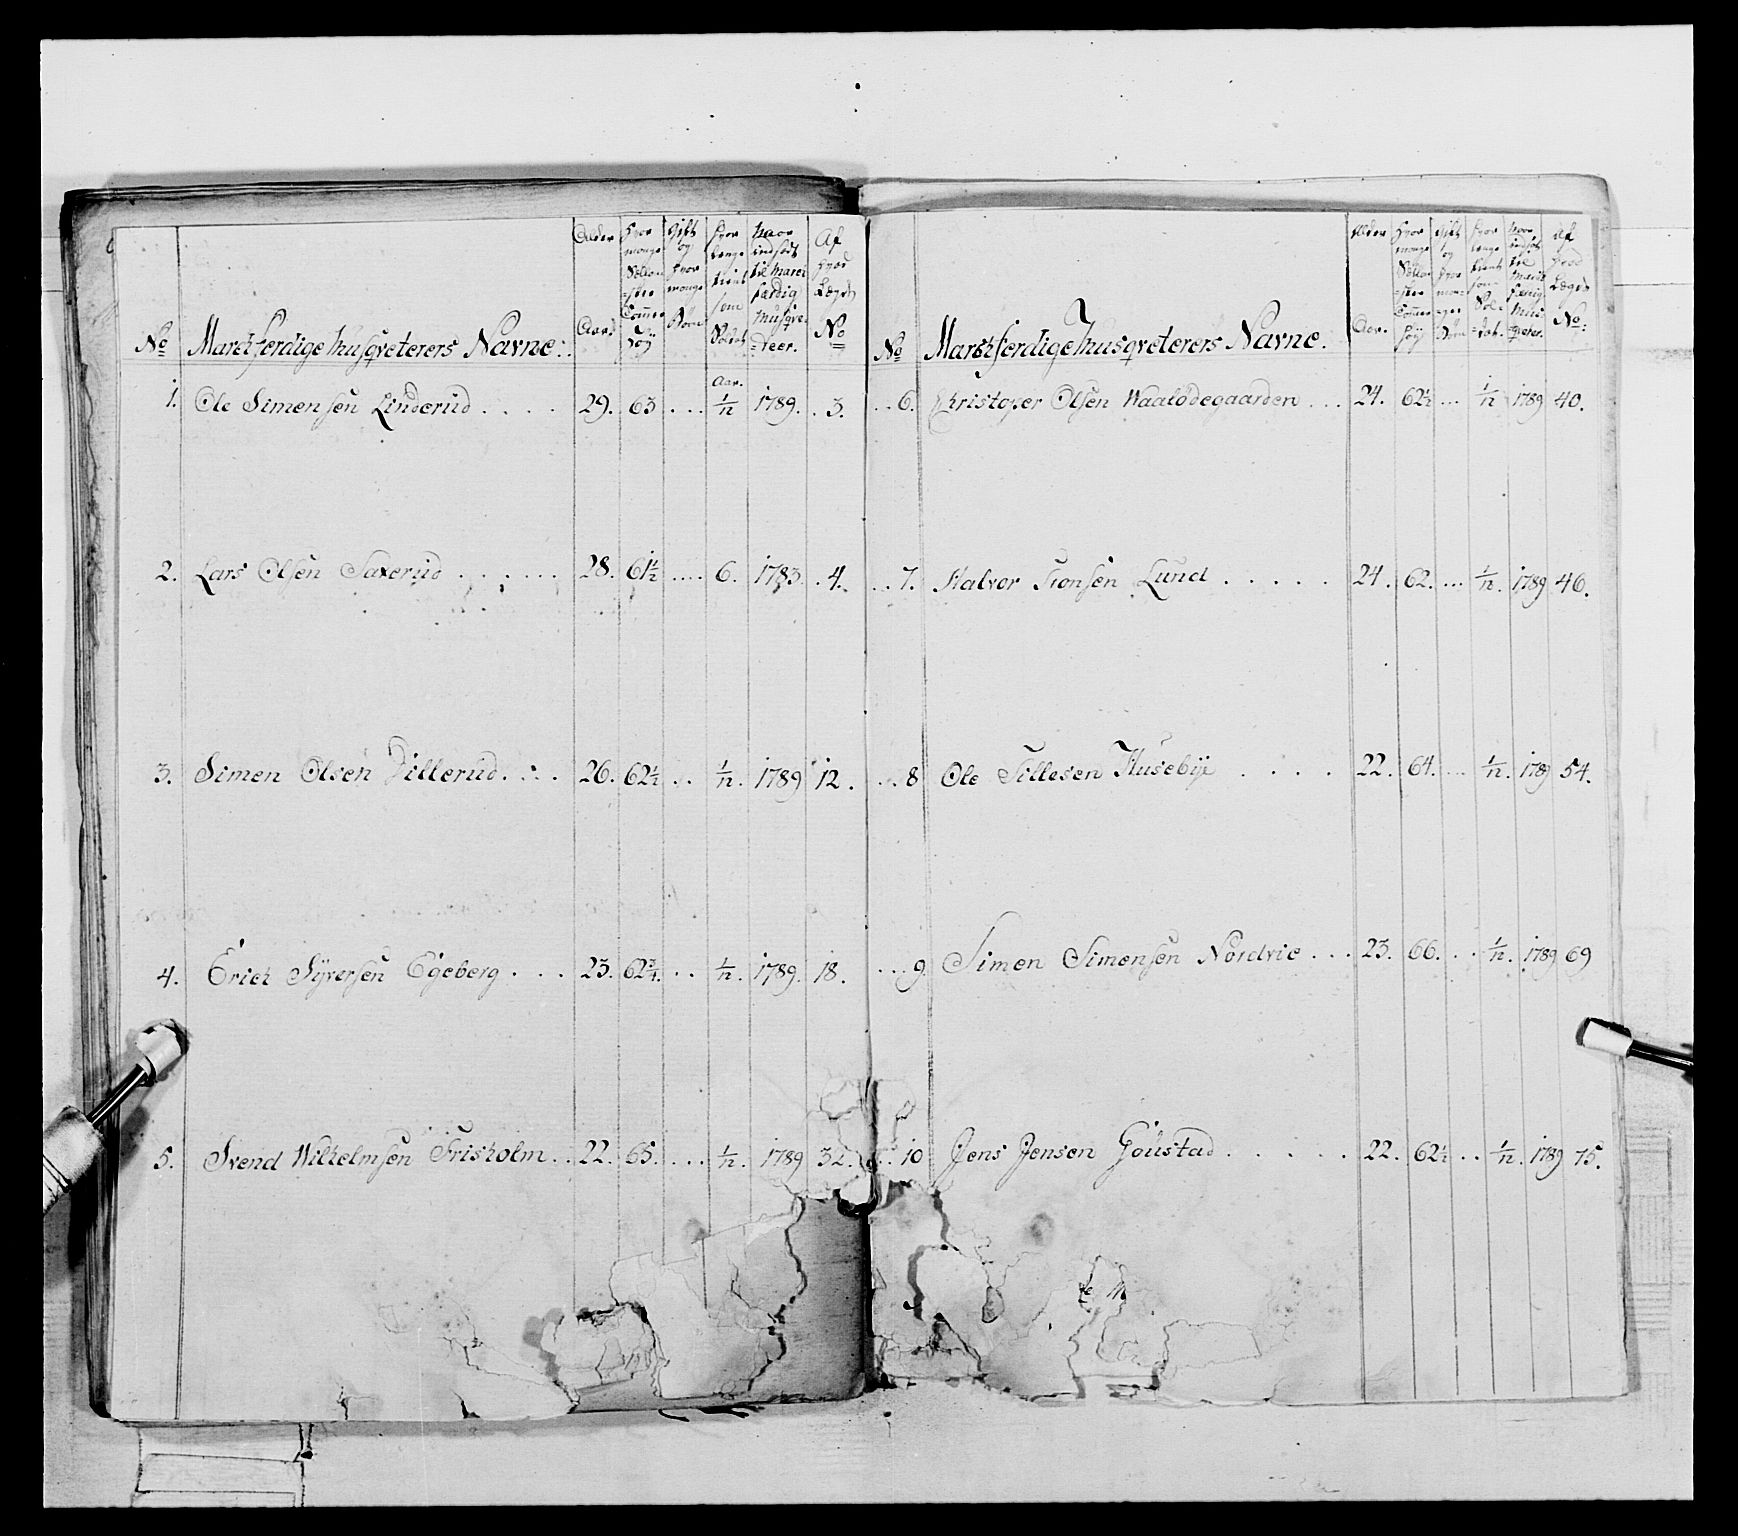 No
Marchferdige Musqveterers Navne:
Alder
Aar.
Hvor
mange
Sollan
-ster
Tom̄er
høÿ
Gift
og
hvor
mange
Børn
Hvor
lenge
tient
som
Soldat
Naar
indsadt
til March
færdig
Musqve-
-teer.
Af
hvad
Lægds
No
1. Ole Simensen Linderud .... 29. 63 ... Aar. 1/12 1789. . 3.
2. Lars Olsen Saxerud ...... 28. 61 1/2 .... 6. 1783. . 4.
3. Simen Olsen Dillerud.... 26. 62 1/2 .. 1/12. 1789 12.
4. Erich Syversen Egeberg ... 23. 62 3/4. .. 1/12. 1789. 18.
5. Svend Wilhelmsen Frisholm .. 22. 65. ... 1/12. 1789 32.
No
Marchferdige Musqveterers Navne.
Alder
Aar.
Hvor
mange
Sollan
-ster
Tom̄er
høÿ
Gift
og
hvor
man-
-ger
Børn
Hvor
lenge
tient
som
Sol-
-dat.
Naar
indsat
til
March
færdig
Mus-
qveteer.
Af
hvad
Lægds
No:
...6. Christoper Olsen Waalødegaarden ... 24. 62 1/2 ... 1/12 1789 40.
...7. Halvor Tronsen Lund ..... 24. 62. ... 1/12. 1789 46.
...8 Ole Tillesen Husebÿe .... 22. 64. ... 1/12. 1789 54.
...9 Simen Simensen Nordvie ... 23. 66. .. 1/12. 1789 69
...10 Jens Jensen Goustad ..... 22. 62 1/2 .. 1/12. 1789 75.